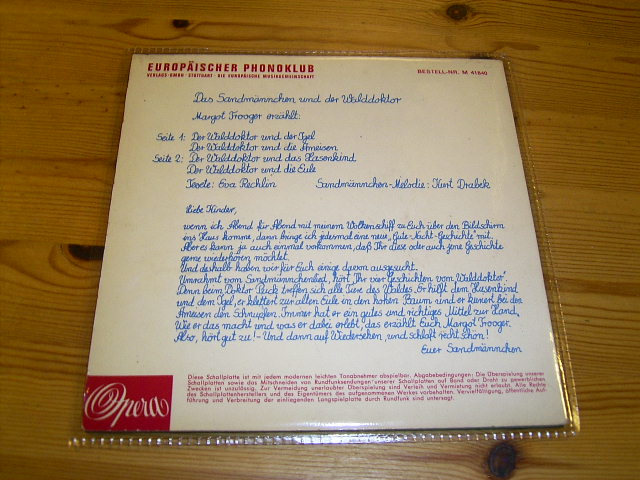 EUROPÄISCHER PHONOKLUB
VERLAGS-GMBH · STUTTGART · DIE EUROPÄISCHE MUSIKGEMEINSCHAFT
BESTELL-NR. M 41840
Das Sandmännchen und der Walddoktor
Margot Trooger erzählt:
Seite 1: Der Walddoktor und der Igel
Der Walddoktor und die Ameisen
Seite 2: Der Walddoktor und das Hasenkind
Der Walddoktor und die Eule
Texte: Eva Rechlin Sandmännchen-Melodie: Kurt Drabek
Liebe Kinder,
wenn ich Abend für Abend mit meinem Wolkenschiff zu Euch über den Bildschirm
ins Haus komme, dann bringe ich jedesmal eine neue „Gute-Nacht-Geschichte" mit.
Aber es kann ja auch einmal vorkommen, daß Ihr diese oder auch jene Geschichte
gerne wiederhören möchtet.
Und deshalb haben wir für Euch einige davon ausgesucht.
Umrahmt vom Sandmännchenlied, hört Ihr vier Geschichten vom „Walddoktor".
Denn beim Doktor Puck treffen sich alle Tiere des Waldes. Er hilft dem Hasenkind
und dem Igel, er klettert zur alten Eule in den hohen Baum und er kuriert bei den
Ameisen den Schnupfen. Immer hat er ein gutes und richtiges Mittel zur Hand.
Wie er das macht und was er dabei erlebt, das erzählt Euch Margot Trooger.
Also, hört gut zu! – Und dann auf Wiedersehen, und schlaft recht schön!
Euer Sandmännchen
Diese Schallplatte ist mit jedem modernen leichten Tonabnehmer abspielbar. Abgabebedingungen: Die Überspielung unserer
Schallplatten sowie das Mitschneiden von Rundfunksendungen unserer Schallplatten auf Band oder Draht zu gewerblichen
Zwecken ist unzulässig. Zur Vermeidung unerlaubter Überspielung sind Verleih und Vermietung nicht erlaubt. Alle Rechte
des Schallplattenherstellers und des Eigentümers des aufgenommenen Werkes vorbehalten. Vervielfältigung, öffentliche Auf-
führung und Verbreitung der einliegenden Langspielplatte durch Rundfunk sind untersagt.
Opera